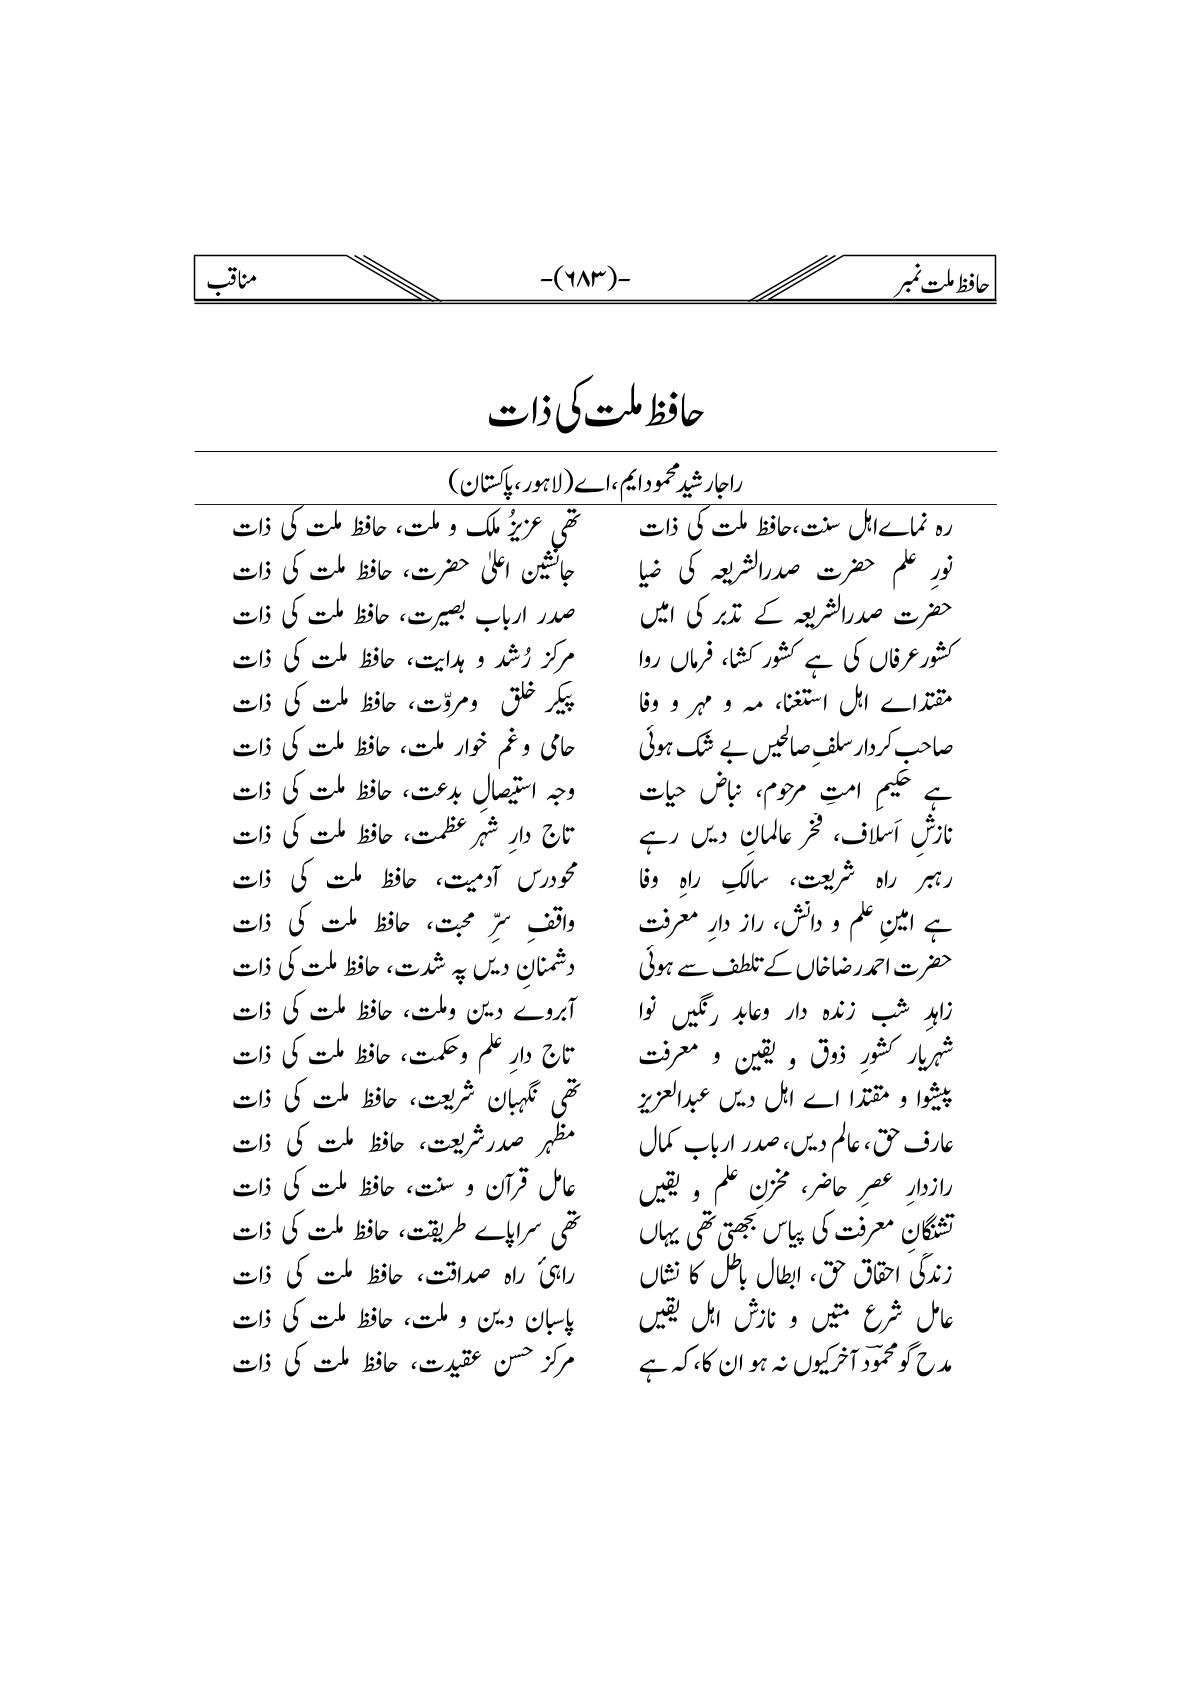 حافظ ملت نمبر -(۶۸۳)- مناقب
حافظ ملت کی ذات
راجا رشید محمود ایم،اے (لاہور، پاکستان)
رہ نماے اہل سنت، حافظ ملت کی ذات تھی عزیزُ ملک و ملت، حافظ ملت کی ذات
نورِ علم حضرت صدرالشریعہ کی ضیا جانشین اعلیٰ حضرت، حافظ ملت کی ذات
حضرت صدرالشریعہ کے تدبر کی امیں صدر ارباب بصیرت، حافظ ملت کی ذات
کشور عرفاں کی ہے کشور کشا، فرماں روا مرکز رُشد و ہدایت، حافظ ملت کی ذات
مقتداے اہل استغنا، مہ و مہر و وفا پیکر خلق ومروّت، حافظ ملت کی ذات
صاحب کردار سلفِ صالحیں بے شک ہوئی حامی وغم خوار ملت، حافظ ملت کی ذات
ہے حکیمِ امتِ مرحوم، نباض حیات وجہ استیصالِ بدعت، حافظ ملت کی ذات
نازشِ اَسلاف، فخر عالمانِ دیں رہے تاج دارِ شہر عظمت، حافظ ملت کی ذات
رہبر راہ شریعت، سالکِ راہِ وفا محودرس آدمیت، حافظ ملت کی ذات
ہے امینِ علم و دانش، راز دارِ معرفت واقفِ سرِّ محبت، حافظ ملت کی ذات
حضرت احمد رضا خاں کے تلطف سے ہوئی دشمنانِ دیں پہ شدت، حافظ ملت کی ذات
زاہدِ شب زندہ دار وعابد رنگیں نوا آبروے دین وملت، حافظ ملت کی ذات
شہریار کشورِ ذوق و یقین و معرفت تاج دارِ علم وحکمت، حافظ ملت کی ذات
پیشوا و مقتدا اے اہل دیں عبدالعزیز تھی نگہبان شریعت، حافظ ملت کی ذات
عارف حق، عالم دیں، صدر ارباب کمال مظہر صدر شریعت، حافظ ملت کی ذات
رازدارِ عصرِ حاضر، مخزنِ علم و یقیں عامل قرآن و سنت، حافظ ملت کی ذات
تشنگانِ معرفت کی پیاس بجھتی تھی یہاں تھی سراپاے طریقت، حافظ ملت کی ذات
زندگی احقاق حق، ابطال باطل کا نشاں راہیٔ راہ صداقت، حافظ ملت کی ذات
عامل شرع متیں و نازش اہل یقیں پاسبان دین و ملت، حافظ ملت کی ذات
مدح گو محمودؔ آخر کیوں نہ ہو ان کا، کہ ہے مرکز حسن عقیدت، حافظ ملت کی ذات